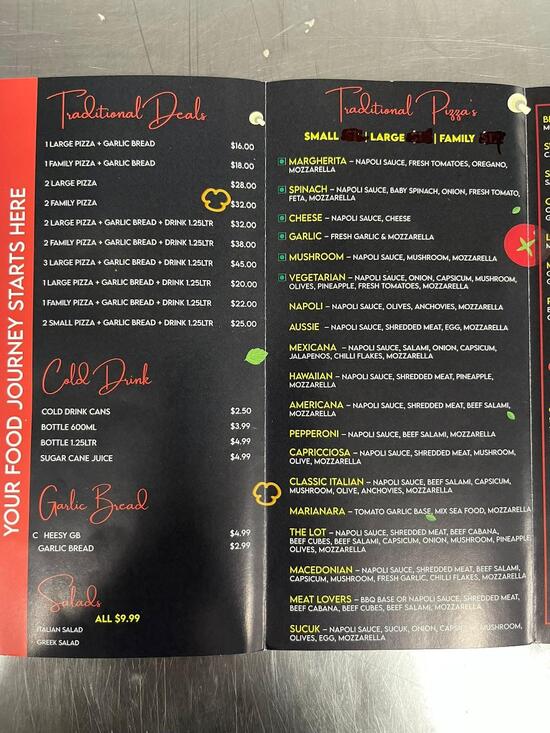 YOUR FOOD JOURNEY STARTS HERE
Traditional Deals
1 LARGE PIZZA + GARLIC BREAD $16.00
1 FAMILY PIZZA + GARLIC BREAD $18.00
2 LARGE PIZZA $28.00
2 FAMILY PIZZA $32.00
2 LARGE PIZZA + GARLIC BREAD + DRINK 1.25LTR $32.00
2 FAMILY PIZZA + GARLIC BREAD + DRINK 1.25LTR $38.00
3 LARGE PIZZA + GARLIC BREAD + DRINK 1.25LTR $45.00
1 LARGE PIZZA + GARLIC BREAD + DRINK 1.25LTR $20.00
1 FAMILY PIZZA + GARLIC BREAD + DRINK 1.25LTR $22.00
2 SMALL PIZZA + GARLIC BREAD + DRINK 1.25LTR $25.00
Cold Drink
COLD DRINK CANS $2.50
BOTTLE 600ML $3.99
BOTTLE 1.25LTR $4.99
SUGAR CANE JUICE $4.99
Garlic Bread
C HEESY GB $4.99
GARLIC BREAD $2.99
Salads
ALL $9.99
ITALIAN SALAD
GREEK SALAD
Traditional Pizza's
SMALL | LARGE | FAMILY
MARGHERITA – NAPOLI SAUCE, FRESH TOMATOES, OREGANO,
MOZZARELLA
SPINACH – NAPOLI SAUCE, BABY SPINACH, ONION, FRESH TOMATO,
FETA, MOZZARELLA
CHEESE – NAPOLI SAUCE, CHEESE
GARLIC – FRESH GARLIC & MOZZARELLA
MUSHROOM – NAPOLI SAUCE, MUSHROOM, MOZZARELLA
VEGETARIAN – NAPOLI SAUCE, ONION, CAPSICUM, MUSHROOM,
OLIVES, PINEAPPLE, FRESH TOMATOES, MOZZARELLA
NAPOLI – NAPOLI SAUCE, OLIVES, ANCHOVIES, MOZZARELLA
AUSSIE – NAPOLI SAUCE, SHREDDED MEAT, EGG, MOZZARELLA
MEXICANA – NAPOLI SAUCE, SALAMI, ONION, CAPSICUM,
JALAPENOS, CHILLI FLAKES, MOZZARELLA
HAWAIIAN – NAPOLI SAUCE, SHREDDED MEAT, PINEAPPLE,
MOZZARELLA
AMERICANA – NAPOLI SAUCE, SHREDDED MEAT, BEEF SALAMI,
MOZZARELLA
PEPPERONI – NAPOLI SAUCE, BEEF SALAMI, MOZZARELLA
CAPRICCIOSA – NAPOLI SAUCE, SHREDDED MEAT, MUSHROOM,
OLIVE, MOZZARELLA
CLASSIC ITALIAN – NAPOLI SAUCE, BEEF SALAMI, CAPSICUM,
MUSHROOM, OLIVE, ANCHOVIES, MOZZARELLA
MARIANARA – TOMATO GARLIC BASE, MIX SEA FOOD, MOZZARELLA
THE LOT – NAPOLI SAUCE, SHREDDED MEAT, BEEF CABANA,
BEEF CUBES, BEEF SALAMI, CAPSICUM, ONION, MUSHROOM, PINEAPPLE
OLIVES, MOZZARELLA
MACEDONIAN – NAPOLI SAUCE, SHREDDED MEAT, BEEF SALAMI,
CAPSICUM, MUSHROOM, FRESH GARLIC, CHILLI FLAKES, MOZZARELLA
MEAT LOVERS – BBQ BASE OR NAPOLI SAUCE, SHREDDED MEAT,
BEEF CABANA, BEEF CUBES, BEEF SALAMI, MOZZARELLA
SUCUK – NAPOLI SAUCE, SUCUK, ONION, CAPSICUM, MUSHROOM,
OLIVES, EGG, MOZZARELLA